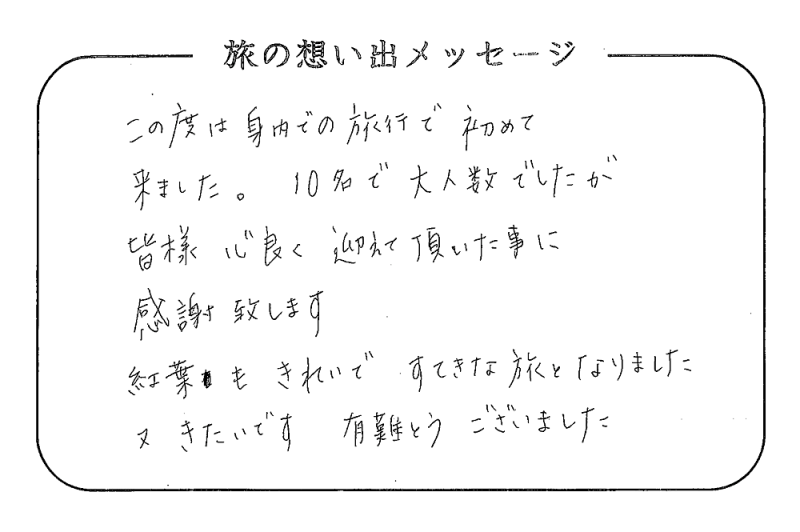 旅の想い出メッセージ
この度は身内での旅行で 初めて
来ました。 10名で 大人数でしたが
皆様 心良く 迎えて頂いた事に
感謝致します
紅葉も きれいで すてきな旅となりました
又 きたいです 有難とう ございました